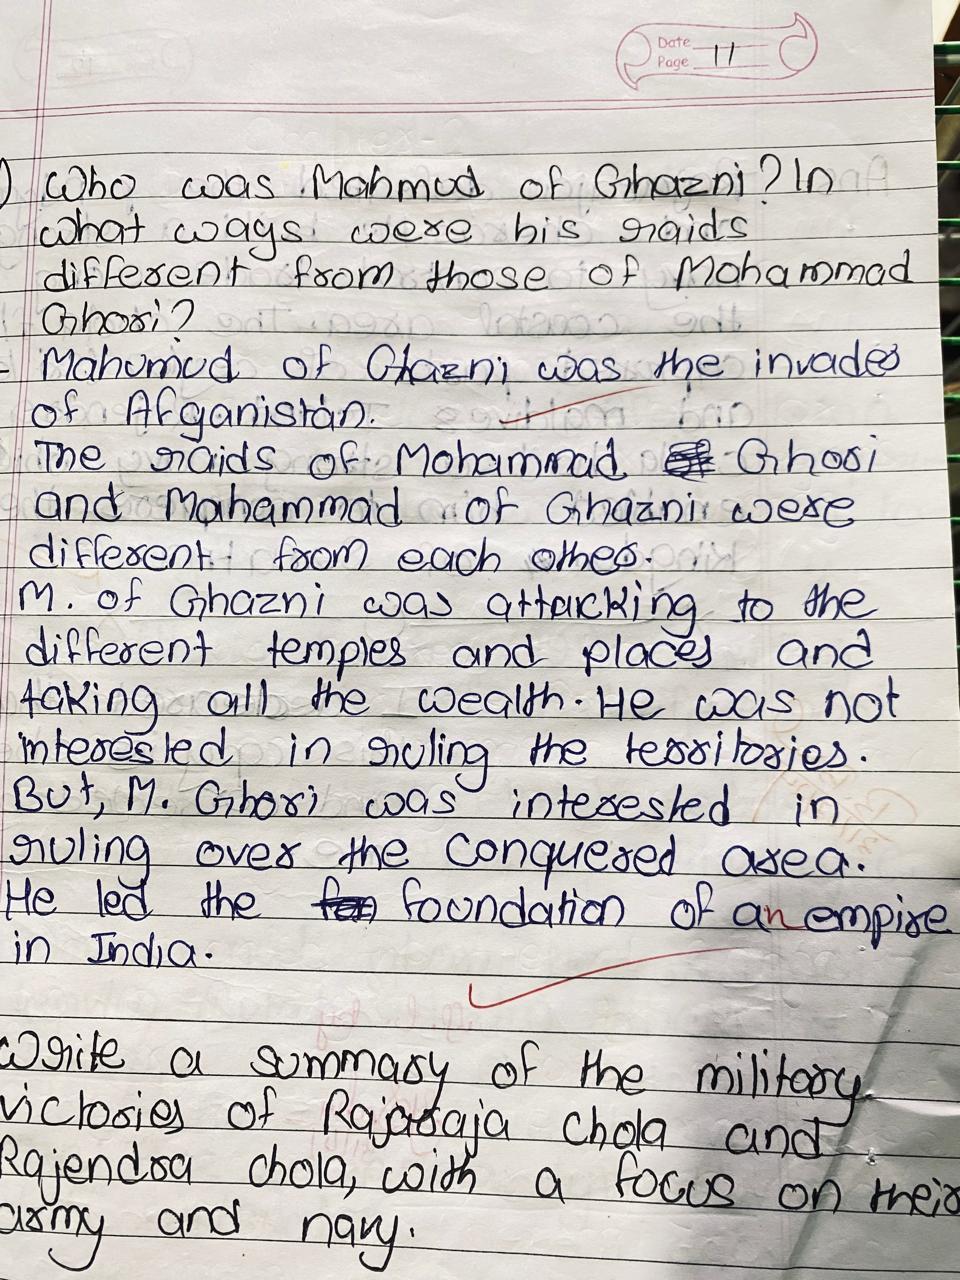 Date
Page 11
) Who was Mahmud of Ghazni? In
what ways were his raids
different from those of Mohammad
Ghori?
- Mahumud of Ghazni was the invader
of Afganistan.
The raids of Mohammad Ghori
and Mahammad of Ghazni were
different from each other.
M. of Ghazni was attacking to the
different temples and places and
taking all the wealth. He was not
interested in ruling the territories.
But, M. Ghori was interested in
ruling over the conquered area.
He led the foundation of an empire
in India.
Write a summary of the military
victories of Rajaraja chola and
Rajendra chola, with a focus on their
army and navy.